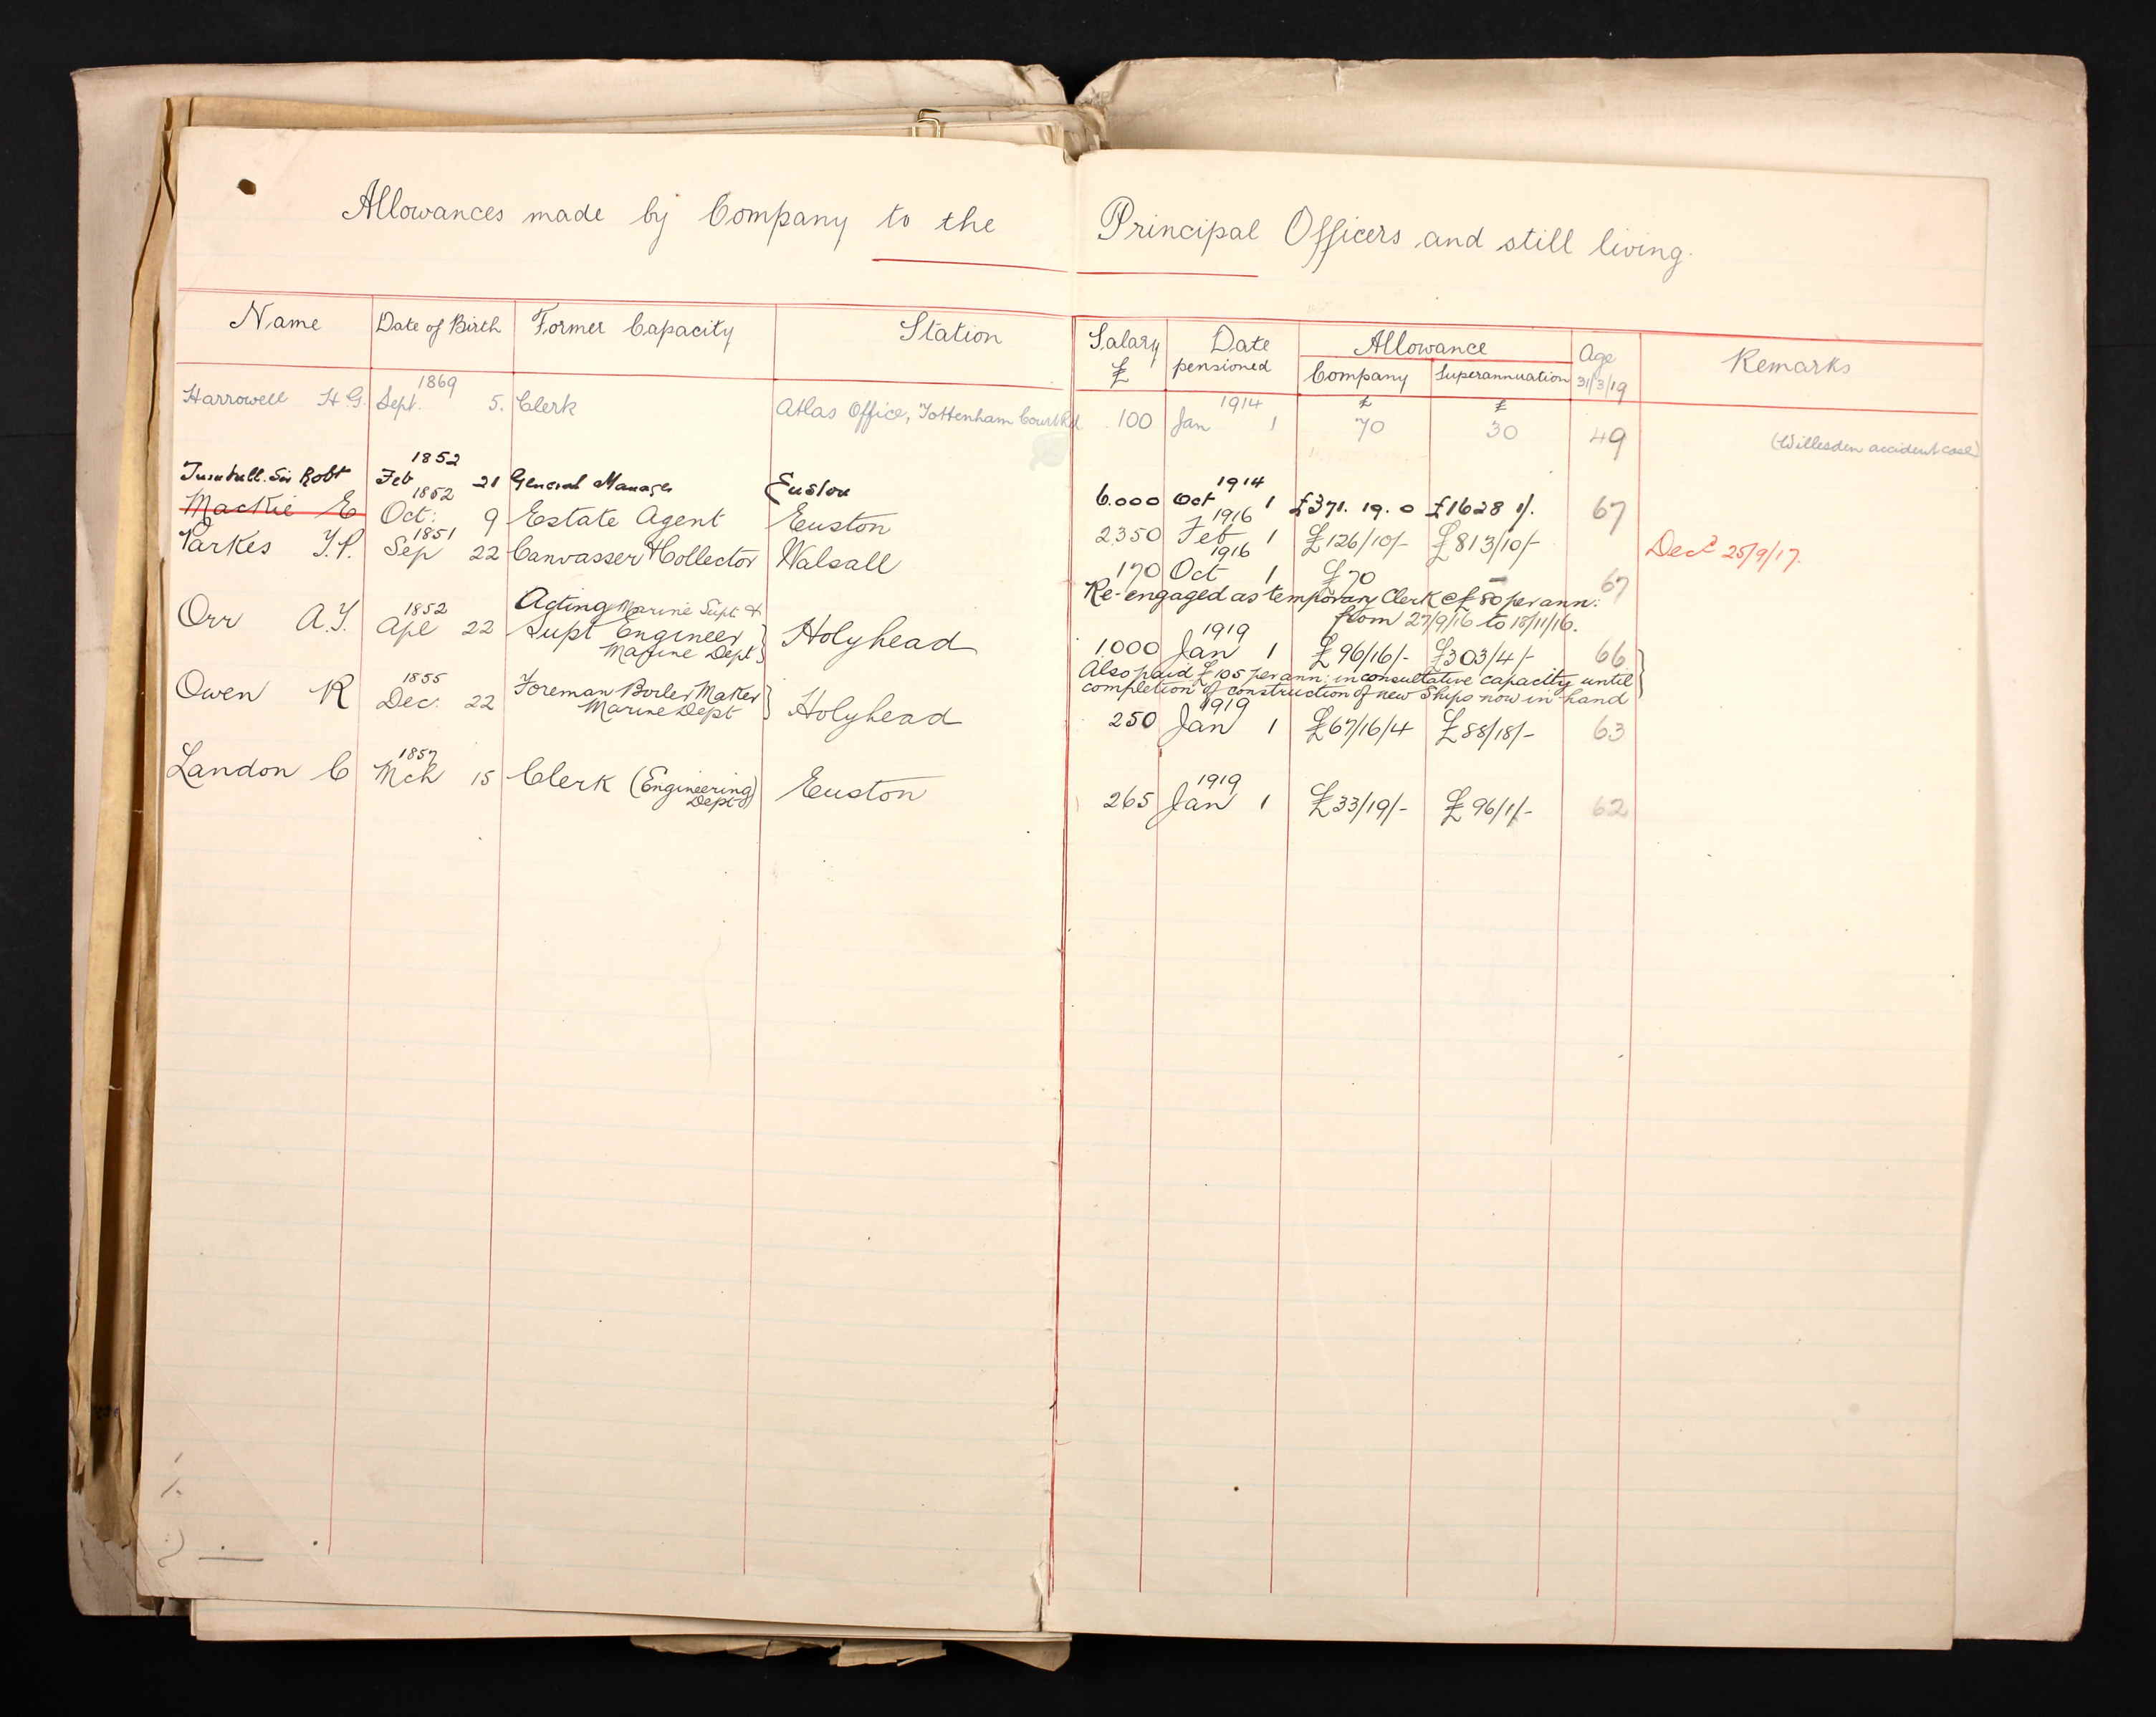 Allowances made by Company to the Principal Officers and still living.
Name Date of Birth Former Capacity Station Salary £ Date pensioned Allowance Company Superannuation Age 31/3/19 Remarks
1869 1914 £ £
Harrowell H.G. Sept. 5. Clerk Atlas Office, Tottenham Court Rd. 100 Jan 1 70 30 49 (Willesden accident case)
1852 1914
Turnbull. Sir Robt Feb 21 General Manager Euston 6.000 Oct 1 £371. 19. 0 £1628 1/. 67
1852 1916
Mackie E Oct: 9 Estate Agent Euston 2350 Feb 1 £126/10/- £813/10/- Decd 25/9/17.
1851 1916
Parkes T.P. Sep 22 Canvasser & Collector Walsall 170 Oct 1 £70 - 67
Re-engaged as temporary Clerk @ £80 per ann:
from 27/9/16 to 18/11/16.
Acting Marine Supt. &
1852 1919
Orr A.T. Apl 22 Supt Engineer Holyhead 1000 Jan 1 £96/16/- £303/4/- 66
Marine Dept
Also paid £105 per ann: in consultative capacity until
completion of construction of new Ships now in hand
1855 1919
Owen R Dec. 22 Foreman Boiler Maker Holyhead 250 Jan 1 £67/16/4 £88/18/- 63
Marine Dept
1857 1919
Landon C Mch 15 Clerk (Engineering Dept) Euston 265 Jan 1 £33/19/- £96/1/- 62